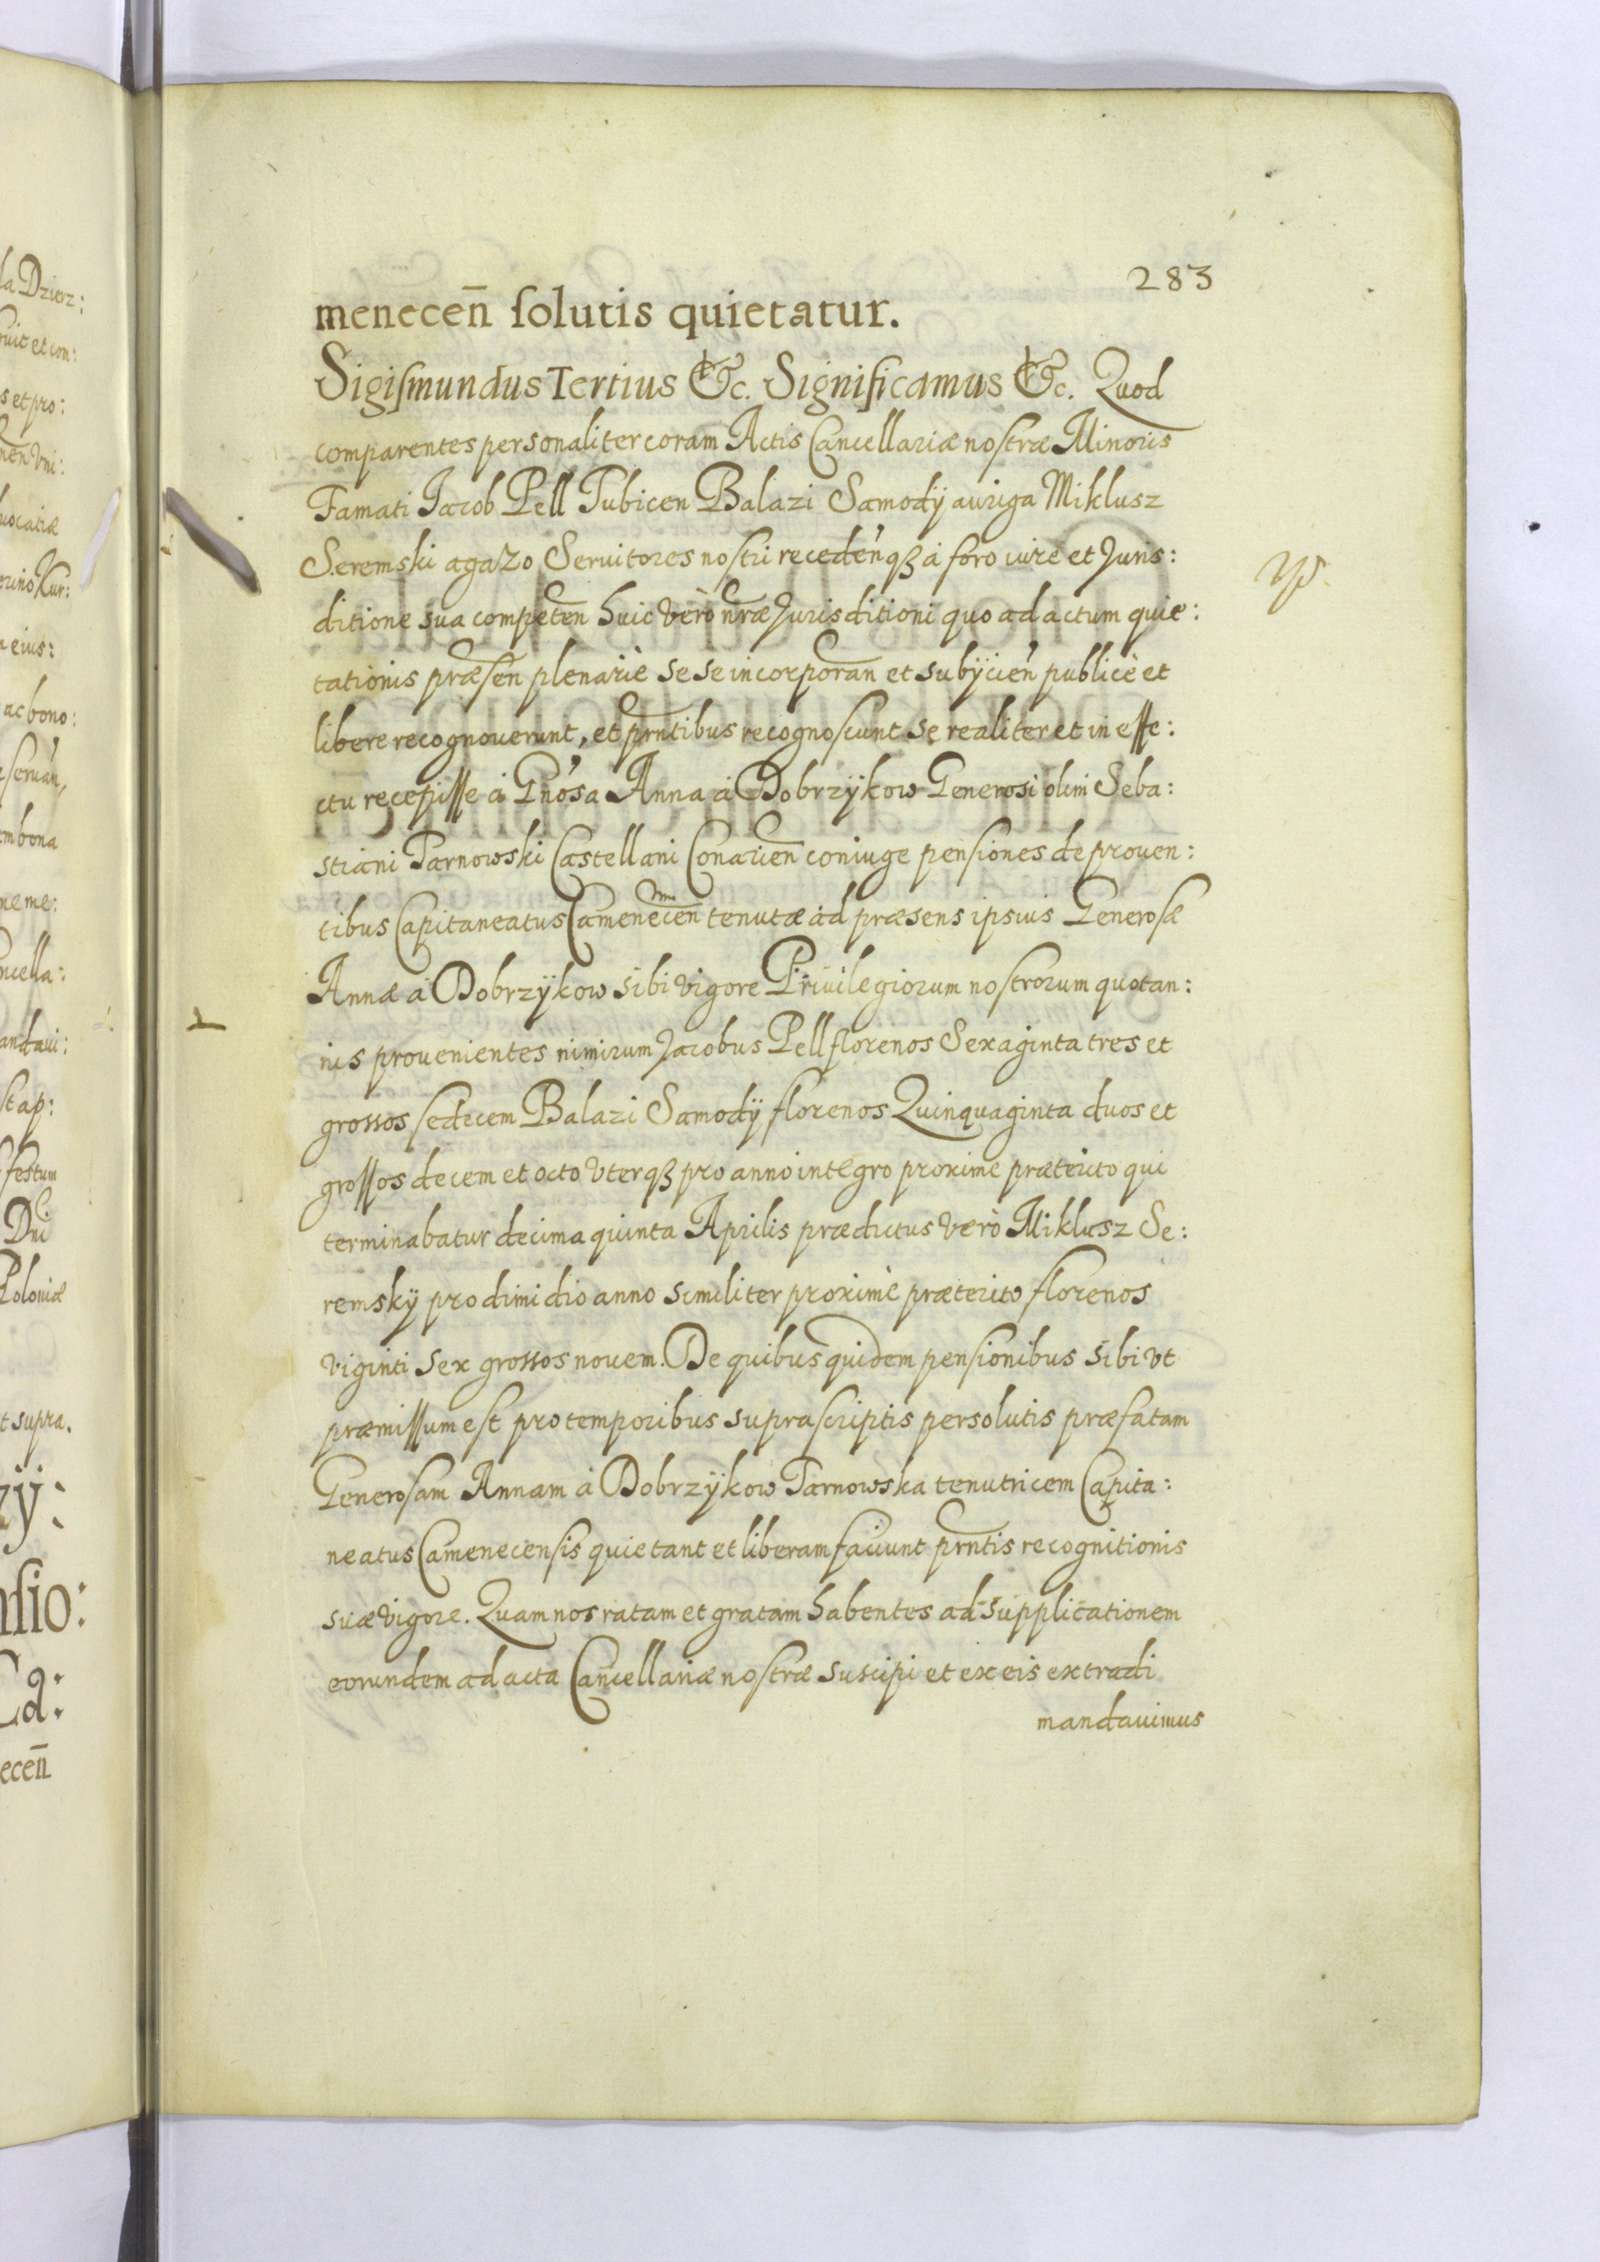 283
menecen̄ solutis quietatur.
Sigismundus Tertius &c. Significamus &c. Quod
comparentes personaliter coram Actis Cancellariæ nostræ Minoris
Famati Jacob Pell Tubicen Balazi Samodÿ auriga Miklusz
Seremski agazo Seruitores nostri recedén̄qꝫ à foro iure et Juris:
ditione sua competen̄ huic verò nr̄æ Jurisditioni quo ad actum quie:
tationis præsen̄ plenariè sese incorporan̄ et subÿcien̄ publicè et
libere recognouerunt, et prn̄tibus recognoscunt se realiter et in effe:
ctu recepisse à Gńosa Anna à Dobrzÿkow Generosi olim Seba:
stiani Tarnowski Castellani Conarien̄ coniuge pensiones de prouen:
tibus Capitaneatus Camenecen̄ tenutæ ad præsens ipsius Generosæ
Annæ à Dobrzÿkow sibi vigore Priuilegiorum nostrorum quotan:
nis prouenientes nimirum Jacobus Pell florenos Sexaginta tres et
grossos sedecem Balazi Samodÿ florenos Quinquaginta duos et
grossos decem et octo vterqꝫ pro anno integro proxime præterito qui
terminabatur decima quinta Aprilis prædictus verò Miklusz Se:
remskÿ pro dimidio anno similiter proximè præterito florenos
viginti sex grossos nouem. De quibus quidem pensionibus sibi vt
præmissum est pro temporibus suprascriptis persolutis præfatam
Generosam Annam à Dobrzÿkow Tarnowska tenutricem Capita:
neatus Camenecensis quietant et liberam faciunt prn̄tis recognitionis
suæ vigore. Quam nos ratam et gratam habentes ad supplicationem
eorundem ad acta Cancellariæ nostræ suscipi et ex eis extradi
mandauimus